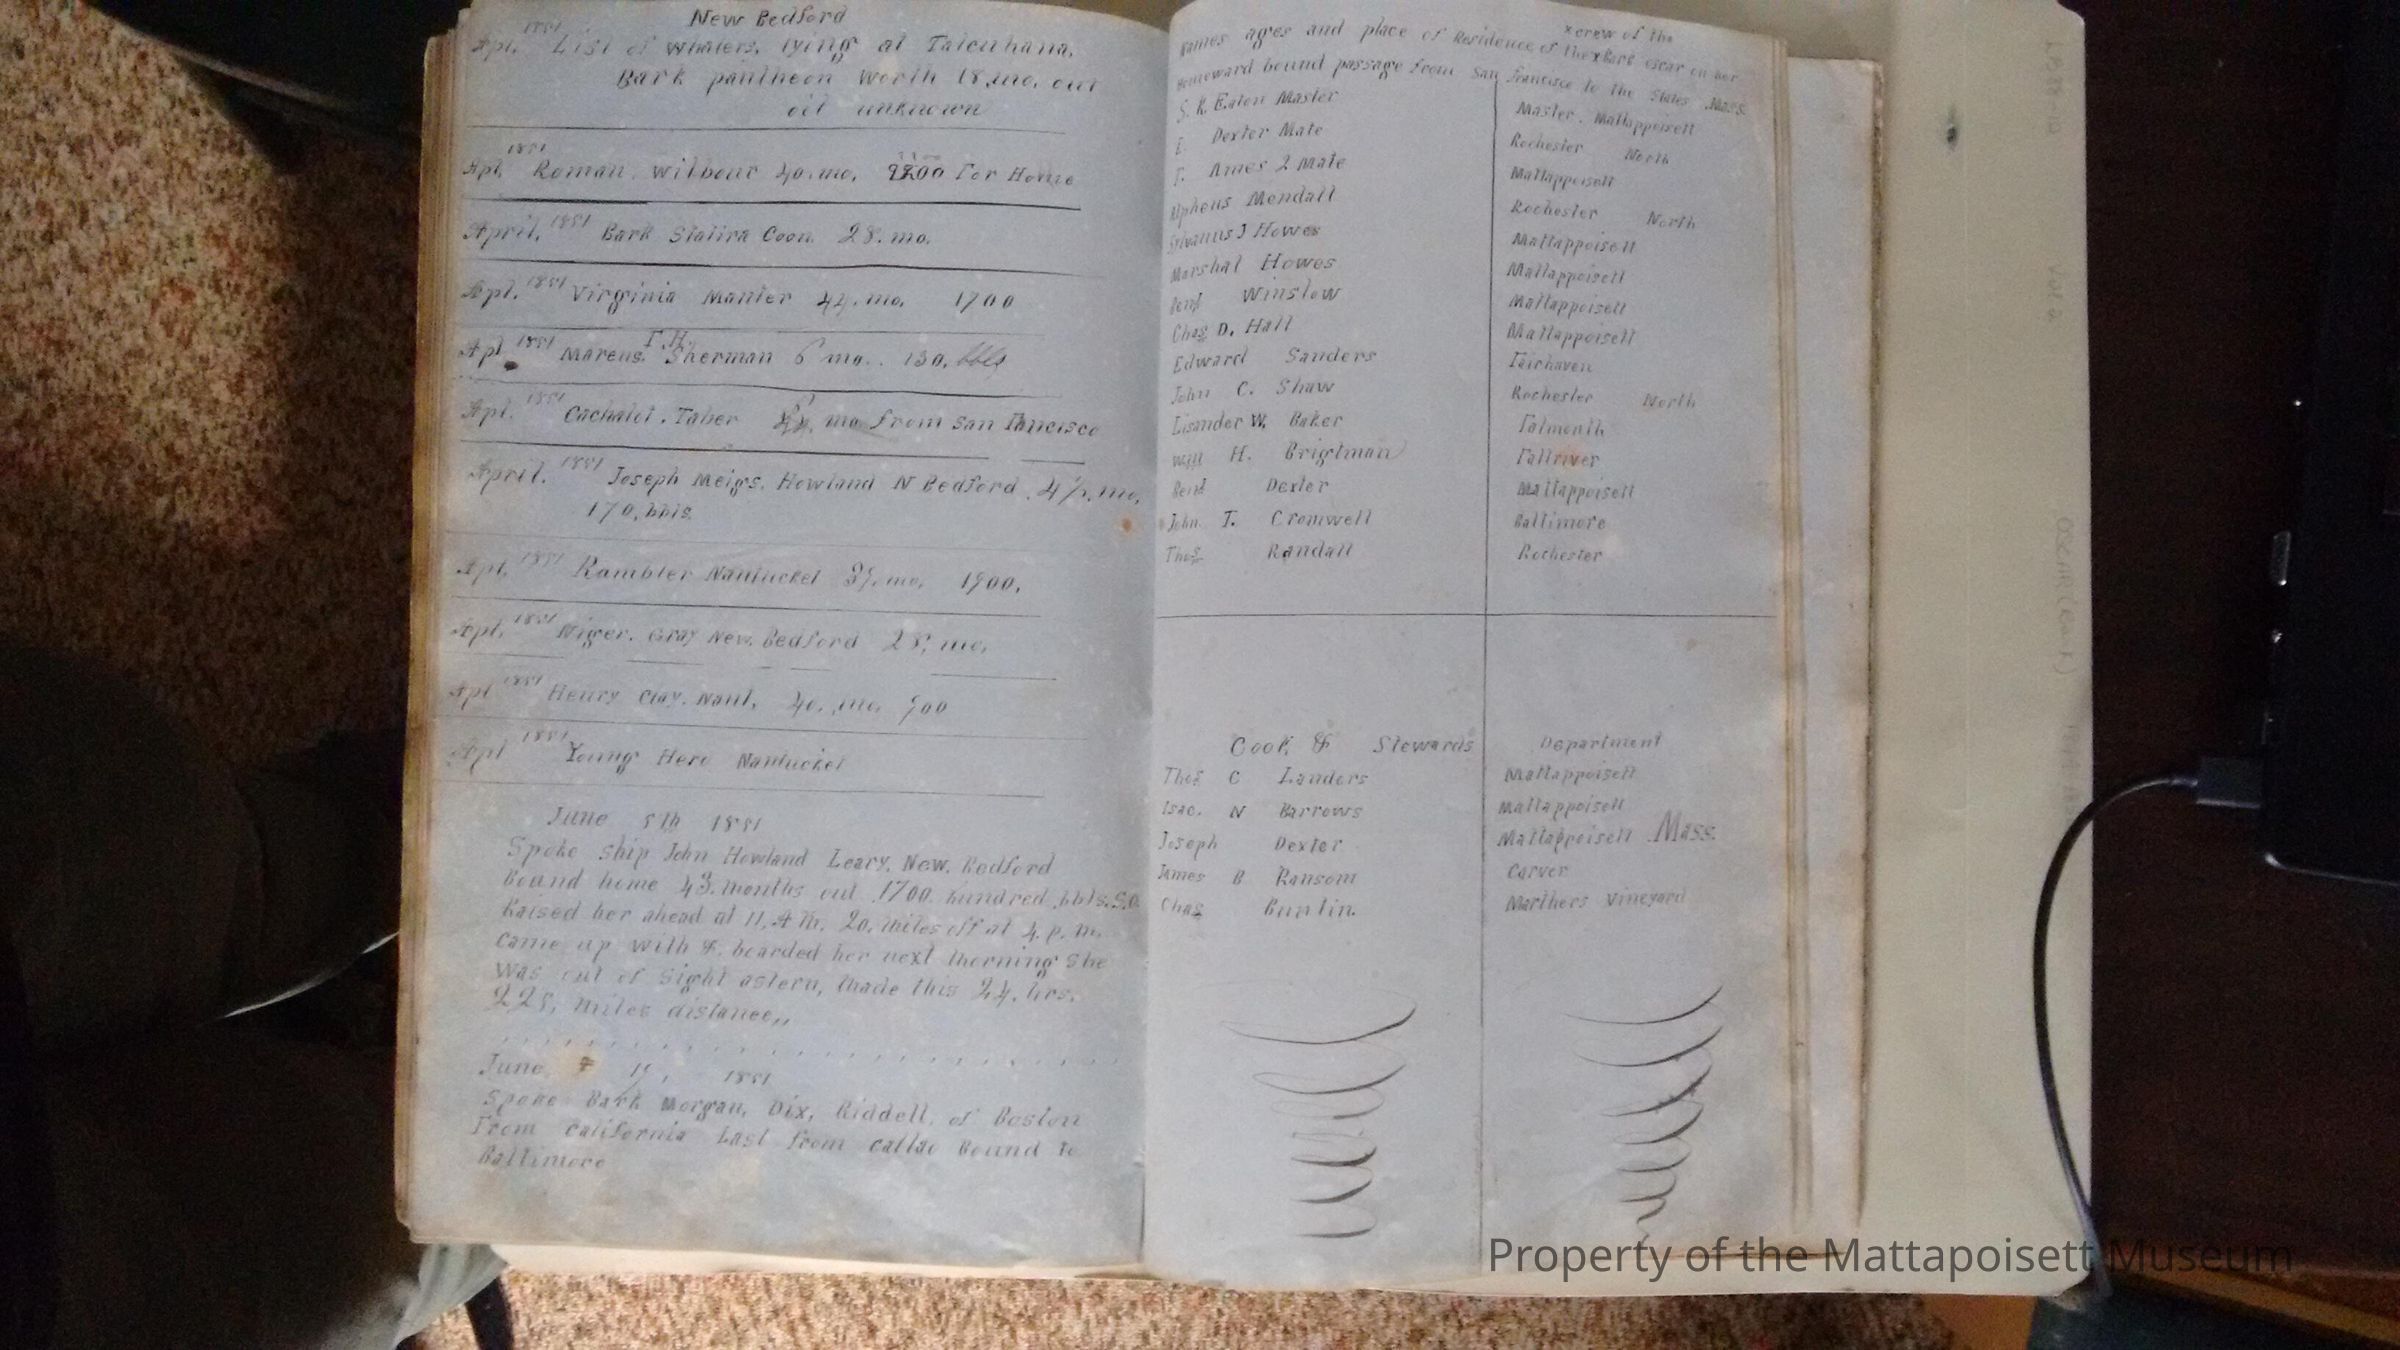 New Bedford
Apl. 1851 List of whalers, lying at Talcuhana.
Bark pantheon Worth 18.mo. out
oil unknown
Apl. 1851 Roman. wilbour 40.mo, for Home
April. 1851 Bark Statira Coon. 28. mo.
Apl. 1851 Virginia Manter 44. mo. 1700
T.H.
Apl 1851 Marcus. Sherman 6 mo.. 130. bbls
Apl. 1851 Cachalot. Taber mo from San Francisco
April. 1851 Joseph Meigs. Howland N Bedford. 4½. mo.
170, bbls.
Apl. 1851 Rambler Nantucket mo. 1900.
Apl. 1851 Niger. Gray New. Bedford 28, mo.
Apl 1851 Henry Clay. Nant. 40. mo. 900
Apl 1851 Young Hero Nantucket
June 8th 1851
Spoke ship John Howland Leary. New. Bedford
Bound home 43. months out 1700. hundred bbls. S.O.
Raised her ahead at 11, A M. 20, miles off at 4. p. m.
came up with &. boarded her next morning she
was out of sight astern, made this 24. hrs.
228, miles distance,,
June 19, 1851
Spoke Bark Morgan, Dix, Riddell, of Boston
From California Last from Callao Bound to
Baltimore
x crew of the
Names ages and place of Residence of the x Bark Oscar on her
Homeward bound passage from San Francisco to the States Mass.
S. R. Eaton Master Master. Mattappoisett
E. Dexter Mate Rochester North
T. Ames 2 Mate Mattappoisett
Alpheus Mendall Rochester North
Silvanus J Howes Mattappoisett
Marshal Howes Mattappoisett
Benj Winslow Mattappoisett
Chas D. Hall Mattappoisett
Edward Sanders Fairhaven
John C. Shaw Rochester North
Lisander W. Baker Falmouth
Wm H. Brigtman Fallriver
Benj Dexter Mattappoisett
John. T. Cromwell Baltimore
Thos Randall Rochester
Cook & Stewards Department
Thos C Landers Mattappoisett
Isac. N Barrows Mattappoisett
Joseph Dexter Mattappoisett Mass.
James B Ransom Carver
Chas Buntin. Marthers Vineyard
Property of the Mattapoisett Museum